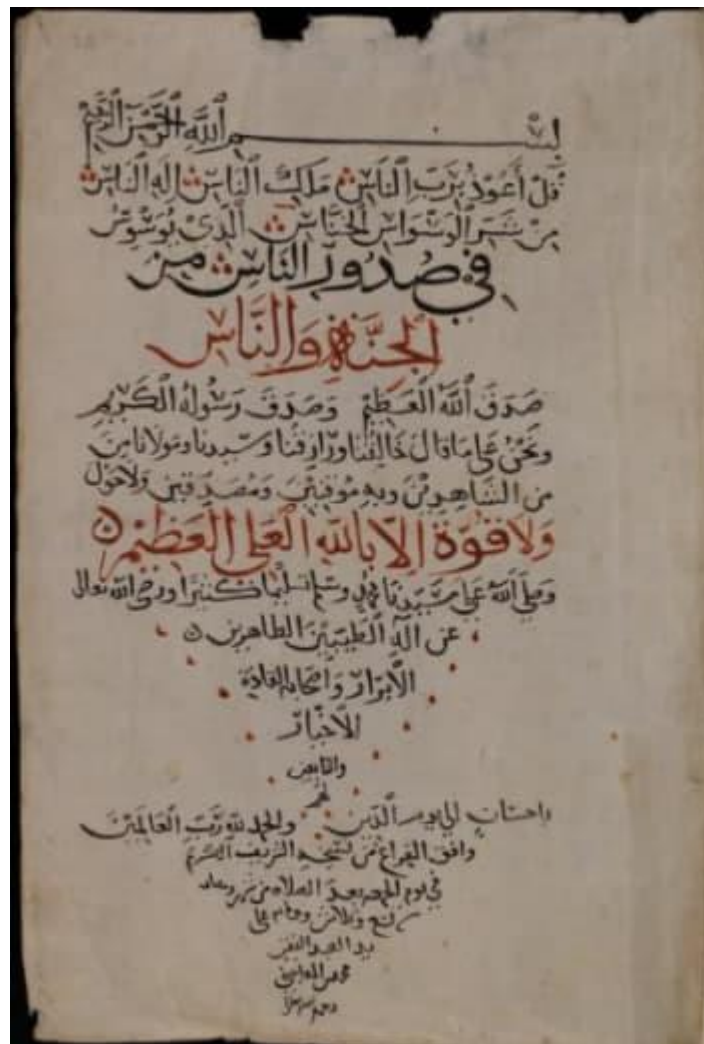 بِسْمِ اللَّهِ الرَّحْمَنِ الرَّحِيمِ
قُلْ أَعُوذُ بِرَبِّ النَّاسِ مَلِكِ النَّاسِ إِلَهِ النَّاسِ
مِنْ شَرِّ الْوَسْوَاسِ الْخَنَّاسِ الَّذِي يُوَسْوِسُ
فِي صُدُورِ النَّاسِ مِنَ
الْجِنَّةِ وَالنَّاسِ
صَدَقَ اللَّهُ الْعَظِيمُ وَصَدَقَ رَسُولُهُ الْكَرِيمُ
ونحن على ما قال خالقنا ورازقنا وسيدنا ومولانا من
من الشاهدين وبه موقنين ومصدقين ولا حول
ولا قوة إلا بالله العلي العظيم
وصلى الله على سيدنا محمد وسلم تسليما كثيرا ورضي الله تعالى
عن آله الطيبين الطاهرين
الأبرار وأصحابه القادة
الأخيار
والتابعين
لهم
بإحسان إلى يوم الدين والحمد لله رب العالمين
وافق الفراغ من نسخه الشريف
في يوم الجمعة بعد الصلاة من شهر
وثلاثين على
يد العبد الفقير
محمد